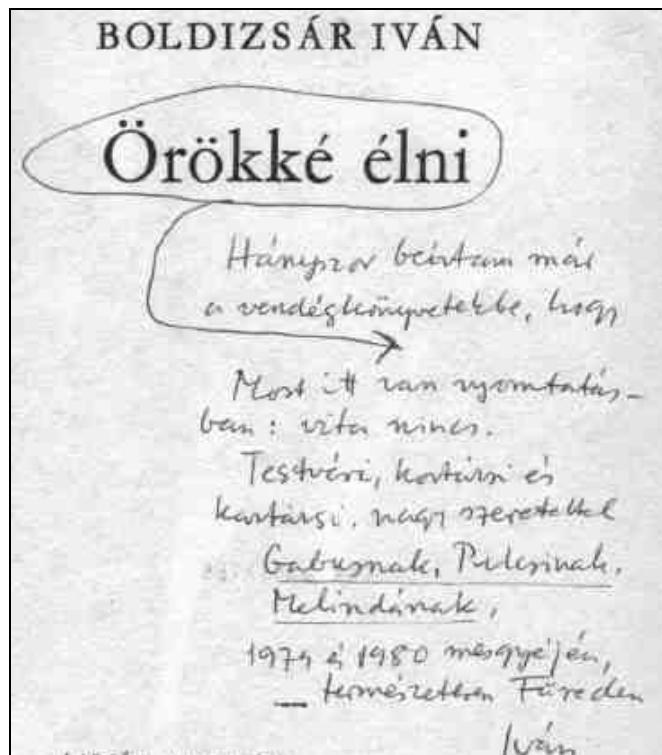 BOLDIZSÁR IVÁN
Örökké élni
Hányszor beírtam már
a vendégkönyvetekbe, hogy
Most itt van nyomtatás-
ban: vita nincs.
Testvéri, kortársi és
kartársi, nagy szeretettel
Gabusnak, Pulcsinak,
Melindának,
1979 és 1980 mesgyéjén,
természetesen Füreden
Iván